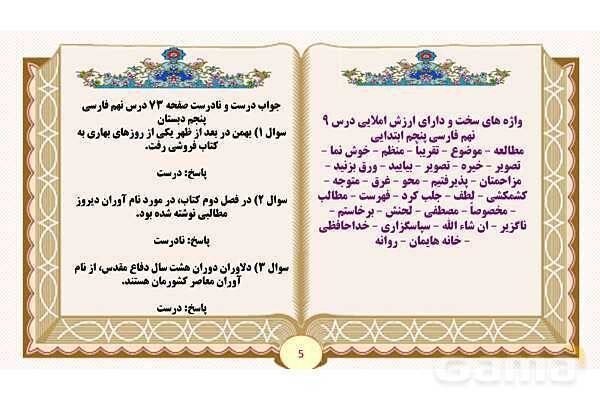 واژه های سخت و دارای ارزش املایی درس ۹
نهم فارسی پنجم ابتدایی
مطالعه – موضوع – تقریباً – منظم – خوش نما –
تصویر – خیره – تصویر – بیایید – ورق بزنید –
مزاحمتان – پذیرفتیم – محو – غرق – متوجه –
کشمکشی – لطف – جلب کرد – فهرست – مطالب
– مخصوصاً – مصطفی – لحنش – برخاستم –
ناگزیر – ان شاء الله – سپاسگزاری – خداحافظی
– خانه هایمان – روانه
جواب درست و نادرست صفحه ۷۳ درس نهم فارسی
پنجم دبستان
سوال ۱) بهمن در بعد از ظهر یکی از روزهای بهاری به
کتاب فروشی رفت.
پاسخ: درست
سوال ۲) در فصل دوم کتاب، در مورد نام آوران دیروز
مطالبی نوشته شده بود.
پاسخ: نادرست
سوال ۳) دلاوران دوران هشت سال دفاع مقدس، از نام
آوران معاصر کشورمان هستند.
پاسخ: درست
5
Gama